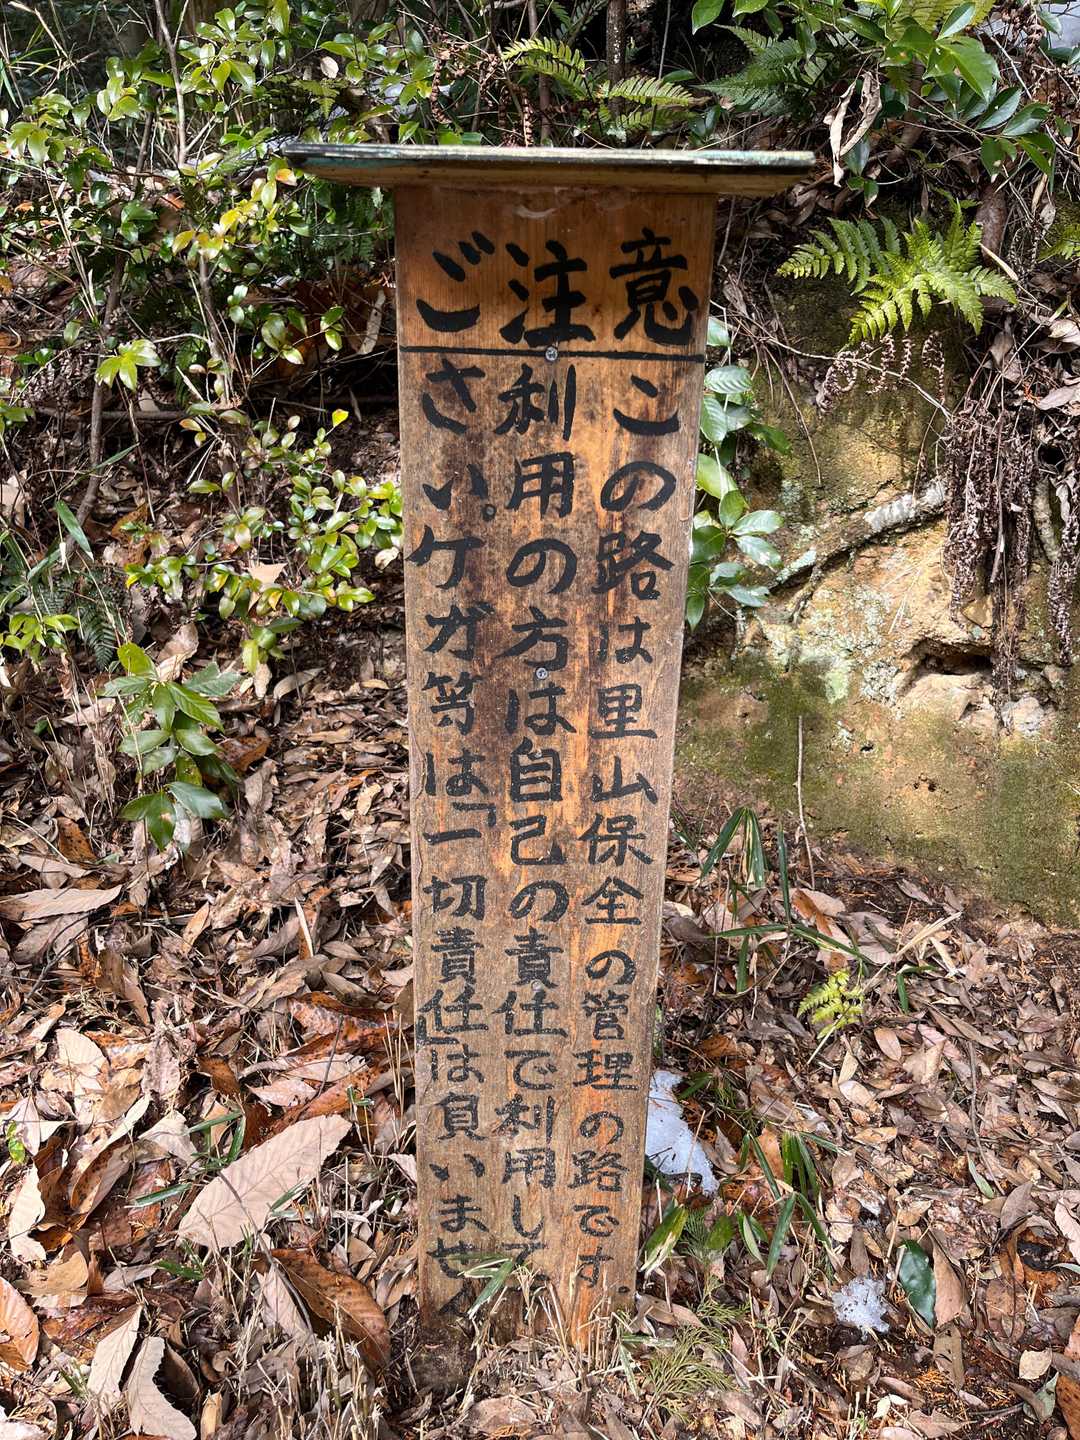 ご注意
この路は里山保全の管理の路です.
利用の方は自己の責任で利用して
さい。ケガ等は「一切責任」は負いません